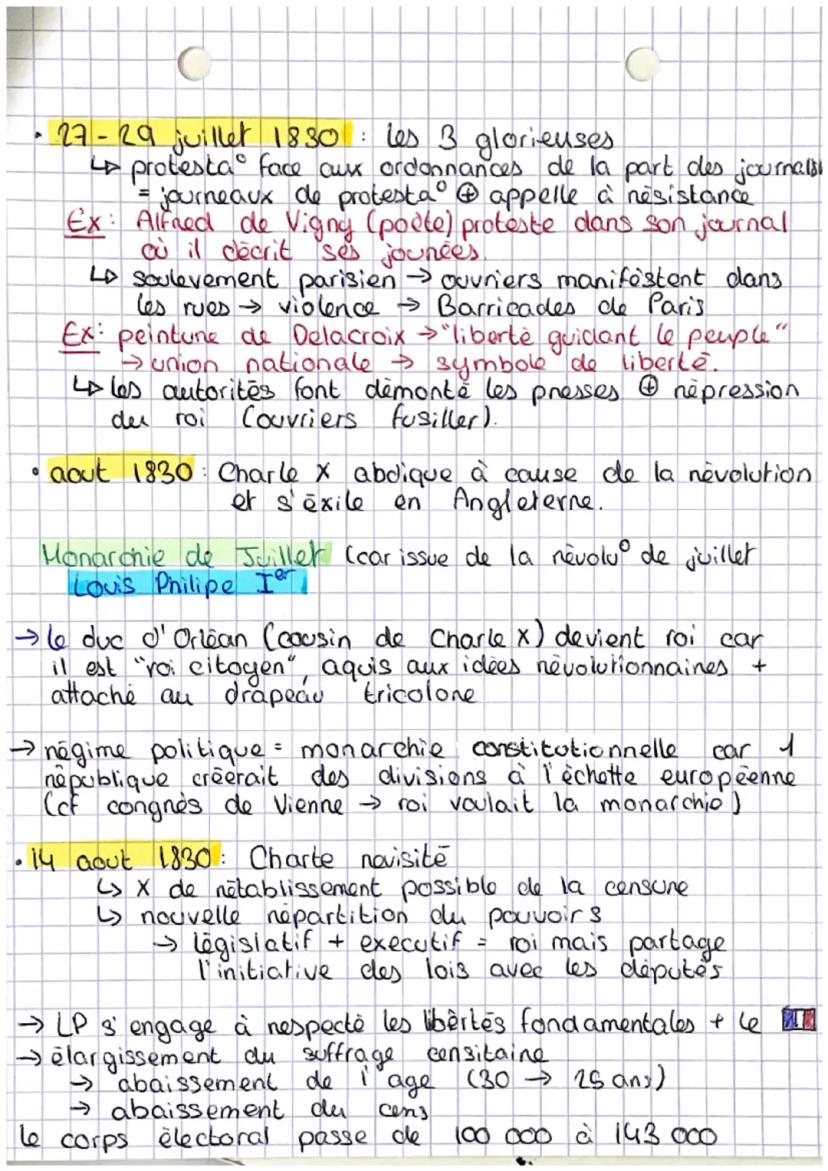 • 27-29 juillet 1830 : les 3 glorieuses
↳ protesta° face aux ordonnances de la part des journals
= journeaux de protesta° ⊕ appelle à résistance
Ex : Alfred de Vigny (poète) proteste dans son journal
où il décrit ses journées.
↳ soulevement parisien → ouvriers manifestent dans
les rues → violence → Barricades de Paris
Ex : peinture de Delacroix → "liberté guidant le peuple"
→ union nationale → symbole de liberté.
↳ les autorités font démonté les presses ⊕ répression
du roi (ouvriers fusiller).
• aout 1830 : Charle X abdique à cause de la révolution
et s'éxile en Angleterre.
Monarchie de Juillet (car issue de la révolu° de juillet
Louis Philipe Ier
→ le duc d'Orléan (cousin de Charle X) devient roi car
il est "roi citoyen", aquis aux idées révolutionnaines +
attaché au drapeau tricolore
→ régime politique = monarchie constitutionnelle car 1
république créerait des divisions à l'échelle européenne
(cf congrès de Vienne → roi voulait la monarchie)
• 14 aout 1830 : Charte revisité
↳ X de rétablissement possible de la censure
↳ nouvelle répartition du pouvoirs
→ législatif + executif = roi mais partage
l'initiative des lois avec les députés
→ LP s'engage à respecté les libértés fondamentales + le
→ élargissement du suffrage censitaine
→ abaissement de l'age (30 → 25 ans)
→ abaissement du cens
le corps électoral passe de 100 000 à 143 000